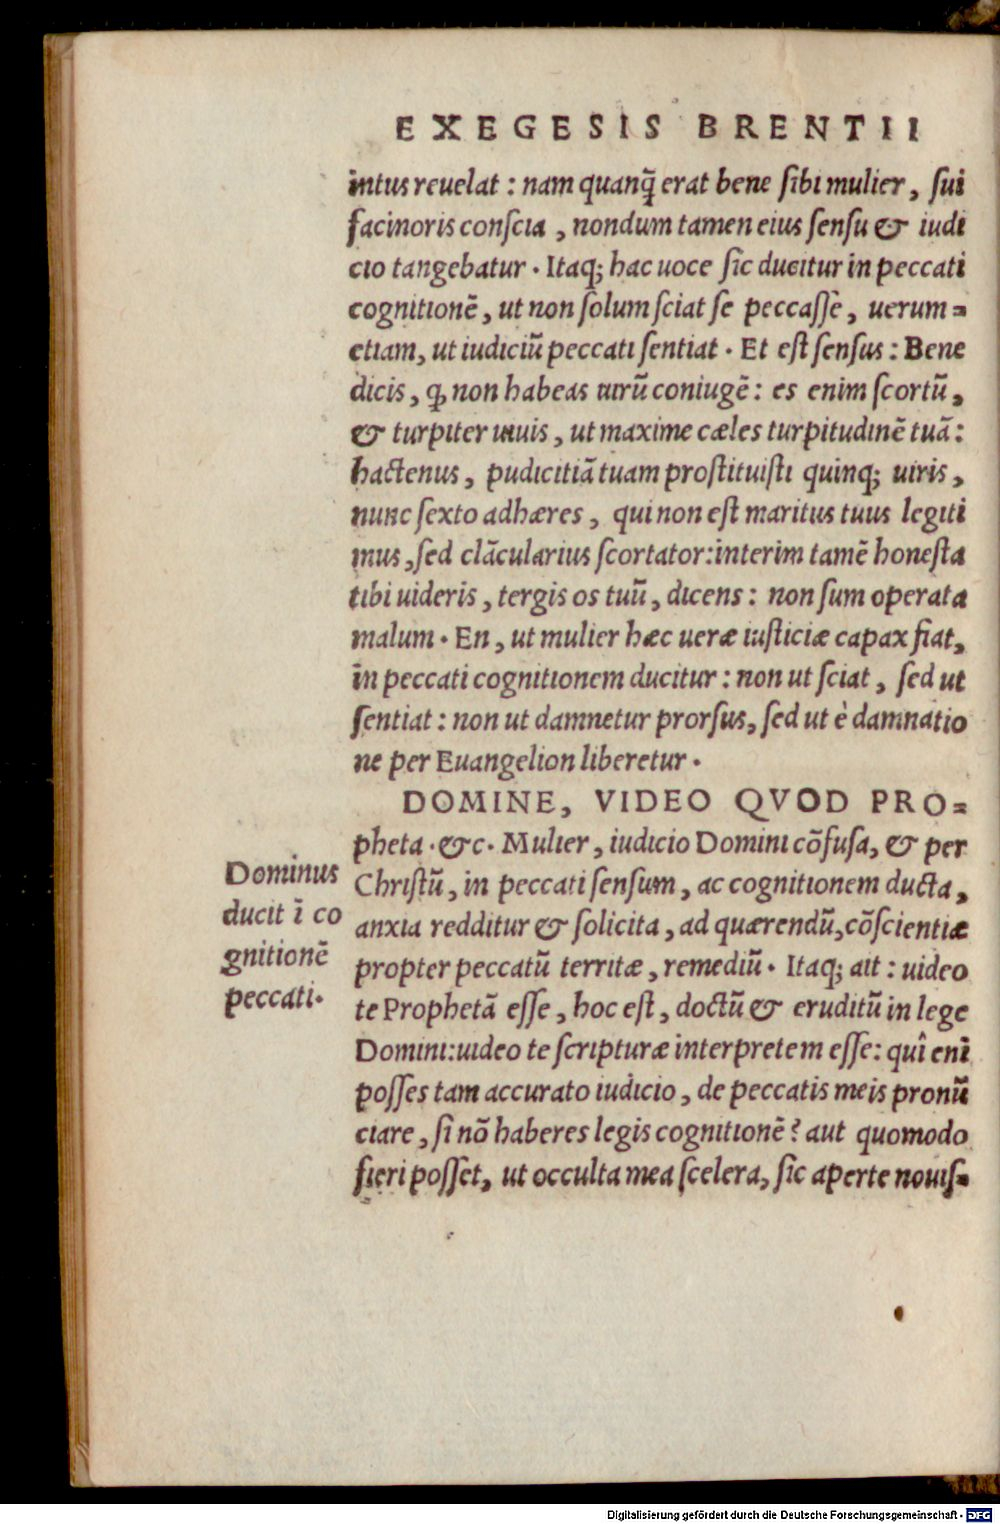 EXEGESIS BRENTII
intus reuelat : nam quanq̃ erat bene sibi mulier, sui
facinoris conscia, nondum tamen eius sensu & iudi
cio tangebatur. Itaq; hac uoce sic ducitur in peccati
cognitionẽ, ut non solum sciat se peccassè, uerum=
etiam, ut iudiciũ peccati sentiat. Et est sensus : Bene
dicis, ꝙ non habeas uirũ coniugẽ: es enim scortũ,
& turpiter uiuis, ut maxime cæles turpitudinẽ tuã:
hactenus, pudicitiã tuam prostituisti quinq; uiris,
nunc sexto adhæres, qui non est maritus tuus legiti
mus, sed clãcularius scortator: interim tamẽ honesta
tibi uideris, tergis os tuũ, dicens : non sum operata
malum. En, ut mulier hæc ueræ iusticiæ capax fiat,
in peccati cognitionem ducitur : non ut sciat, sed ut
sentiat : non ut damnetur prorsus, sed ut è damnatio
ne per Euangelion liberetur.
DOMINE, VIDEO QVOD PRO=
pheta. &c. Mulier, iudicio Domini cõfusa, & per
Christũ, in peccati sensum, ac cognitionem ducta,
anxia redditur & solicita, ad quærendũ, cõscientiæ
propter peccatũ territæ, remediũ. Itaq; ait : uideo
te Prophetã esse, hoc est, doctũ & eruditũ in lege
Domini: uideo te scripturæ interpretem esse: quî enĩ
posses tam accurato iudicio, de peccatis meis pronũ
ciare, si nõ haberes legis cognitionẽ? aut quomodo
fieri posset, ut occulta mea scelera, sic aperte nouis=
Dominus
ducit ĩ co
gnitionẽ
peccati.
Digitalisierung gefördert durch die Deutsche Forschungsgemeinschaft - DFG